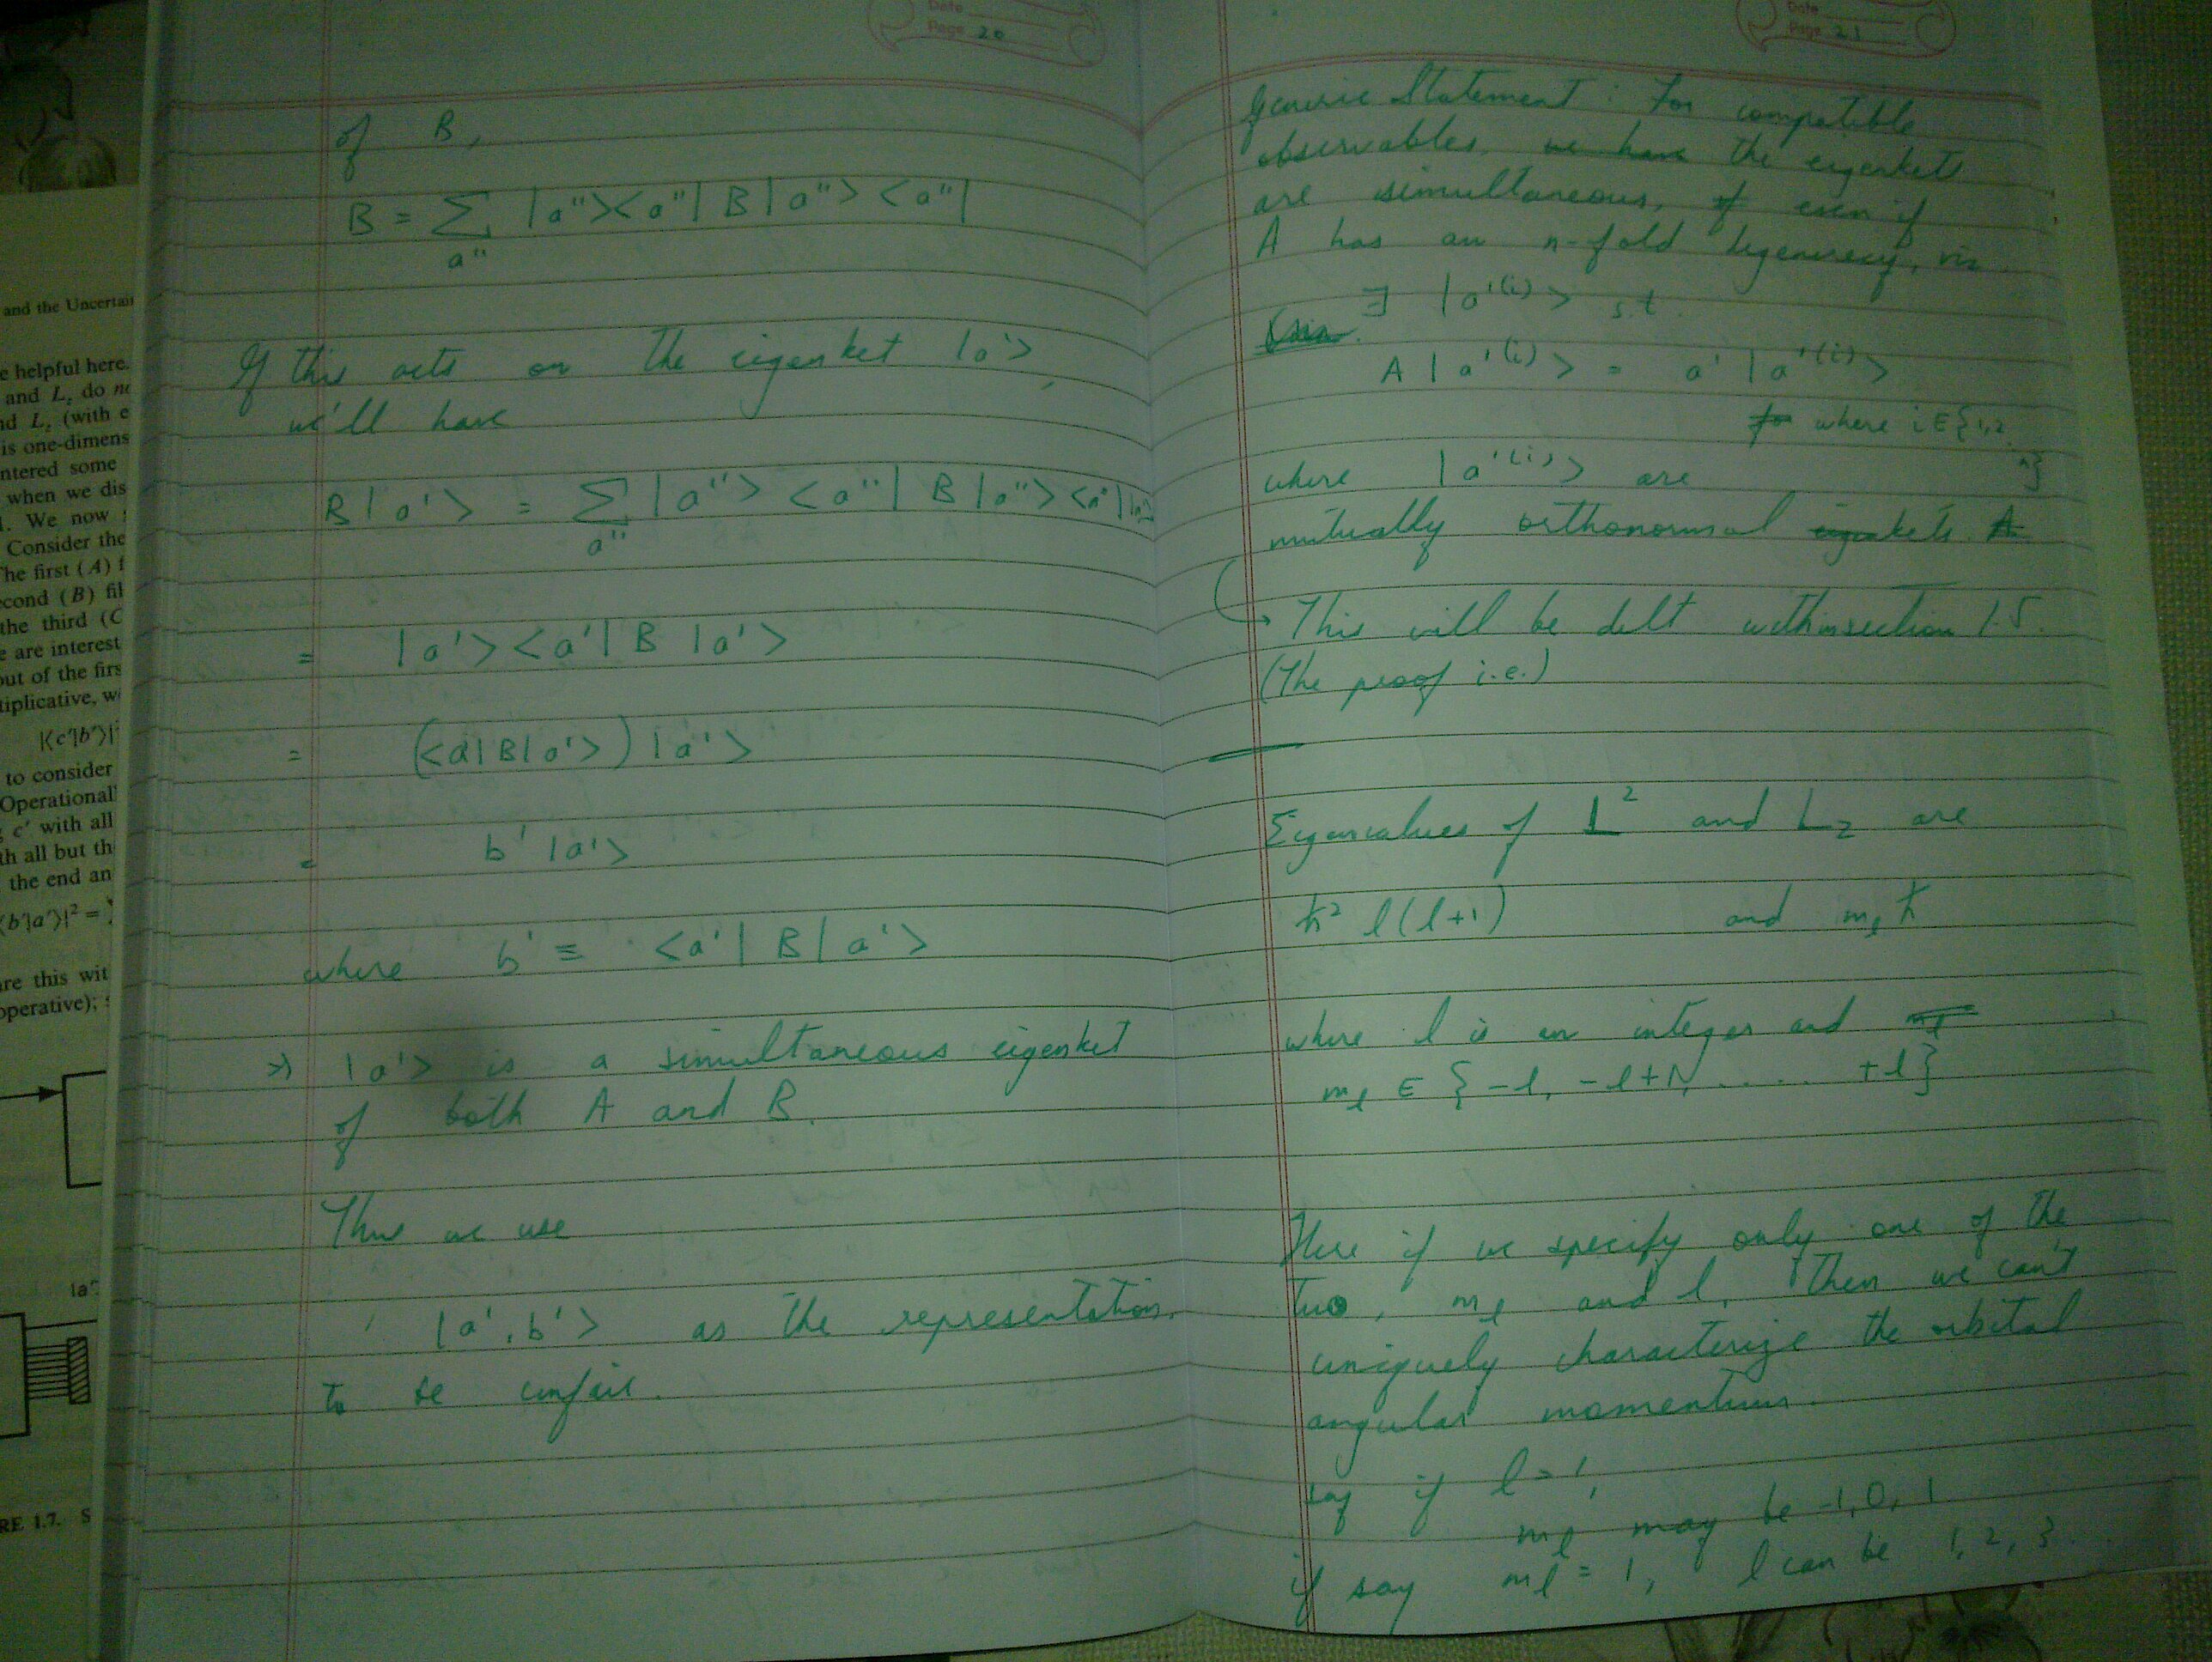 and the Uncertain
e helpful here.
and L_z do no
nd L_z (with e
is one-dimens
ntered some
when we dis
. We now
Consider the
he first (A) f
cond (B) fil
the third (C
e are interest
out of the firs
tiplicative, w
|⟨c'|b'⟩|²
to consider
Operational
c' with all
th all but th
the end an
⟨b'|a'⟩|² =
are this wit
operative);
|a'
RE 1.7. S
Date
Page 20
of B,
B = Σ_{a''} |a''><a''| B |a''> <a''|
If this acts on the eigenket |a'>,
we'll have
B|a'> = Σ_{a''} |a''> <a''| B |a''> <a''|a'>
= |a'><a'| B |a'>
= (<a'|B|a'>) |a'>
= b' |a'>
where b' ≡ <a'| B | a'>
⇒ |a'> is a simultaneous eigenket
of both A and B.
Thus we use
|a', b'> as the representation,
to be
Date
Page 21
Generic Statement : For compatible
observables, we have the eigenkets
are simultaneous, even if
A has an n-fold degeneracy, viz
∃ |a'^(i)> s.t.
A |a'^(i)> = a' |a'^(i)>
for where i ∈ {1,2,
n}
where |a'^(i)> are
mutually orthonormal eigenkets. A
→ This will be delt within section 1.5.
(The proof i.e.)
Eigenvalues of L² and L_z are
ħ² l(l+1) and m_l ħ
where l is an integer and m_l
m_l ∈ {-l, -l+1, ..... +l}
Here if we specify only one of the
two, m_l and l, then we can't
uniquely characterize the orbital
angular momentum.
say if l = 1,
m_l may be -1, 0, 1
if say m_l = 1, l can be 1, 2, 3..